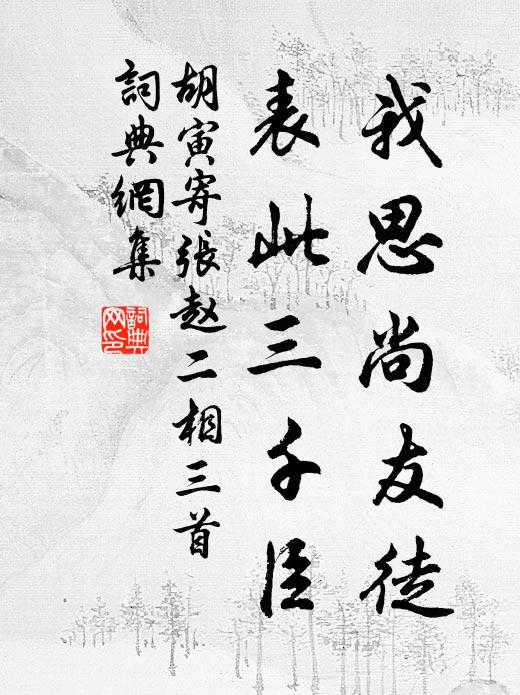 我思尚友徒
表此三千臣
胡寅寄張赵二相三首
詞典網集
詞典网印